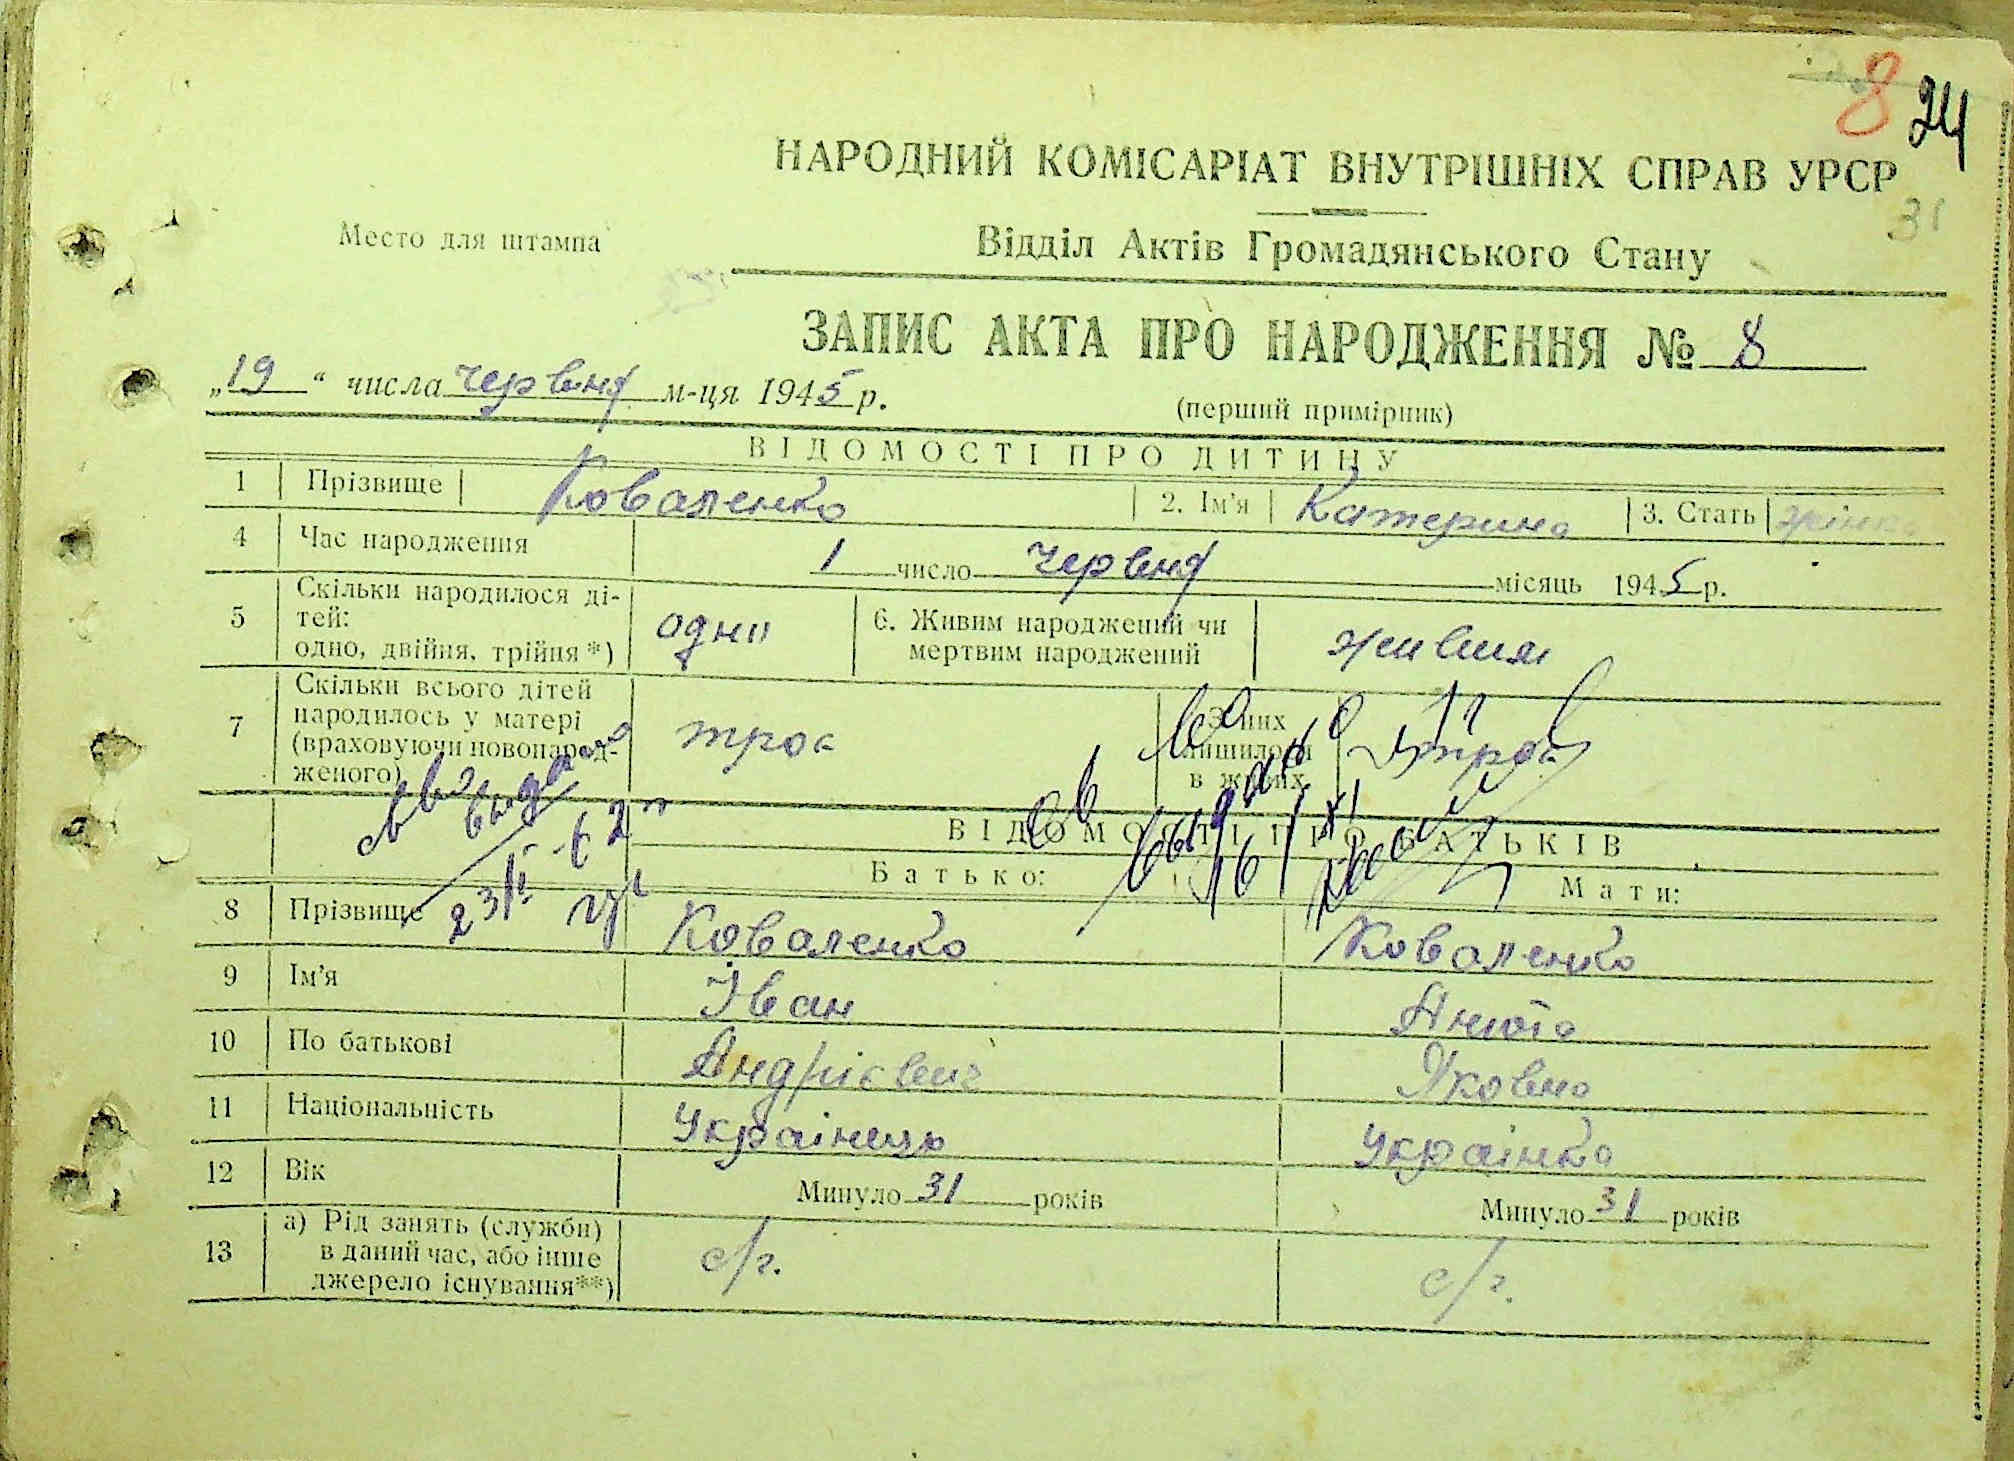 8 24
НАРОДНИЙ КОМІСАРІАТ ВНУТРІШНІХ СПРАВ УРСР
31
Место для штампа
Відділ Актів Громадянського Стану
ЗАПИС АКТА ПРО НАРОДЖЕННЯ № 8
„19“ числа червня м-ця 1945 р.
(перший примірник)
ВІДОМОСТІ ПРО ДИТИНУ
1 Прізвище Коваленко 2. Ім'я Катерина 3. Стать
4 Час народження 1 число червня місяць 1945 р.
5 Скільки народилося ді-
тей:
одно, двійня, трійня *) одно 6. Живим народжений чи
мертвим народжений живим
7 Скільки всього дітей
народилось у матері
(враховуючи новонарод-
женого) троє З них
лишилося
в живих троє
ВІДОМОСТІ ПРО БАТЬКІВ
Батько: Мати:
8 Прізвище Коваленко Коваленко
9 Ім'я Іван
10 По батькові Андрієвич Яковна
11 Національність Українець Українка
12 Вік Минуло 31 років Минуло 31 років
13 а) Рід занять (служби)
в даний час, або інше
джерело існування**) с/г. с/г.